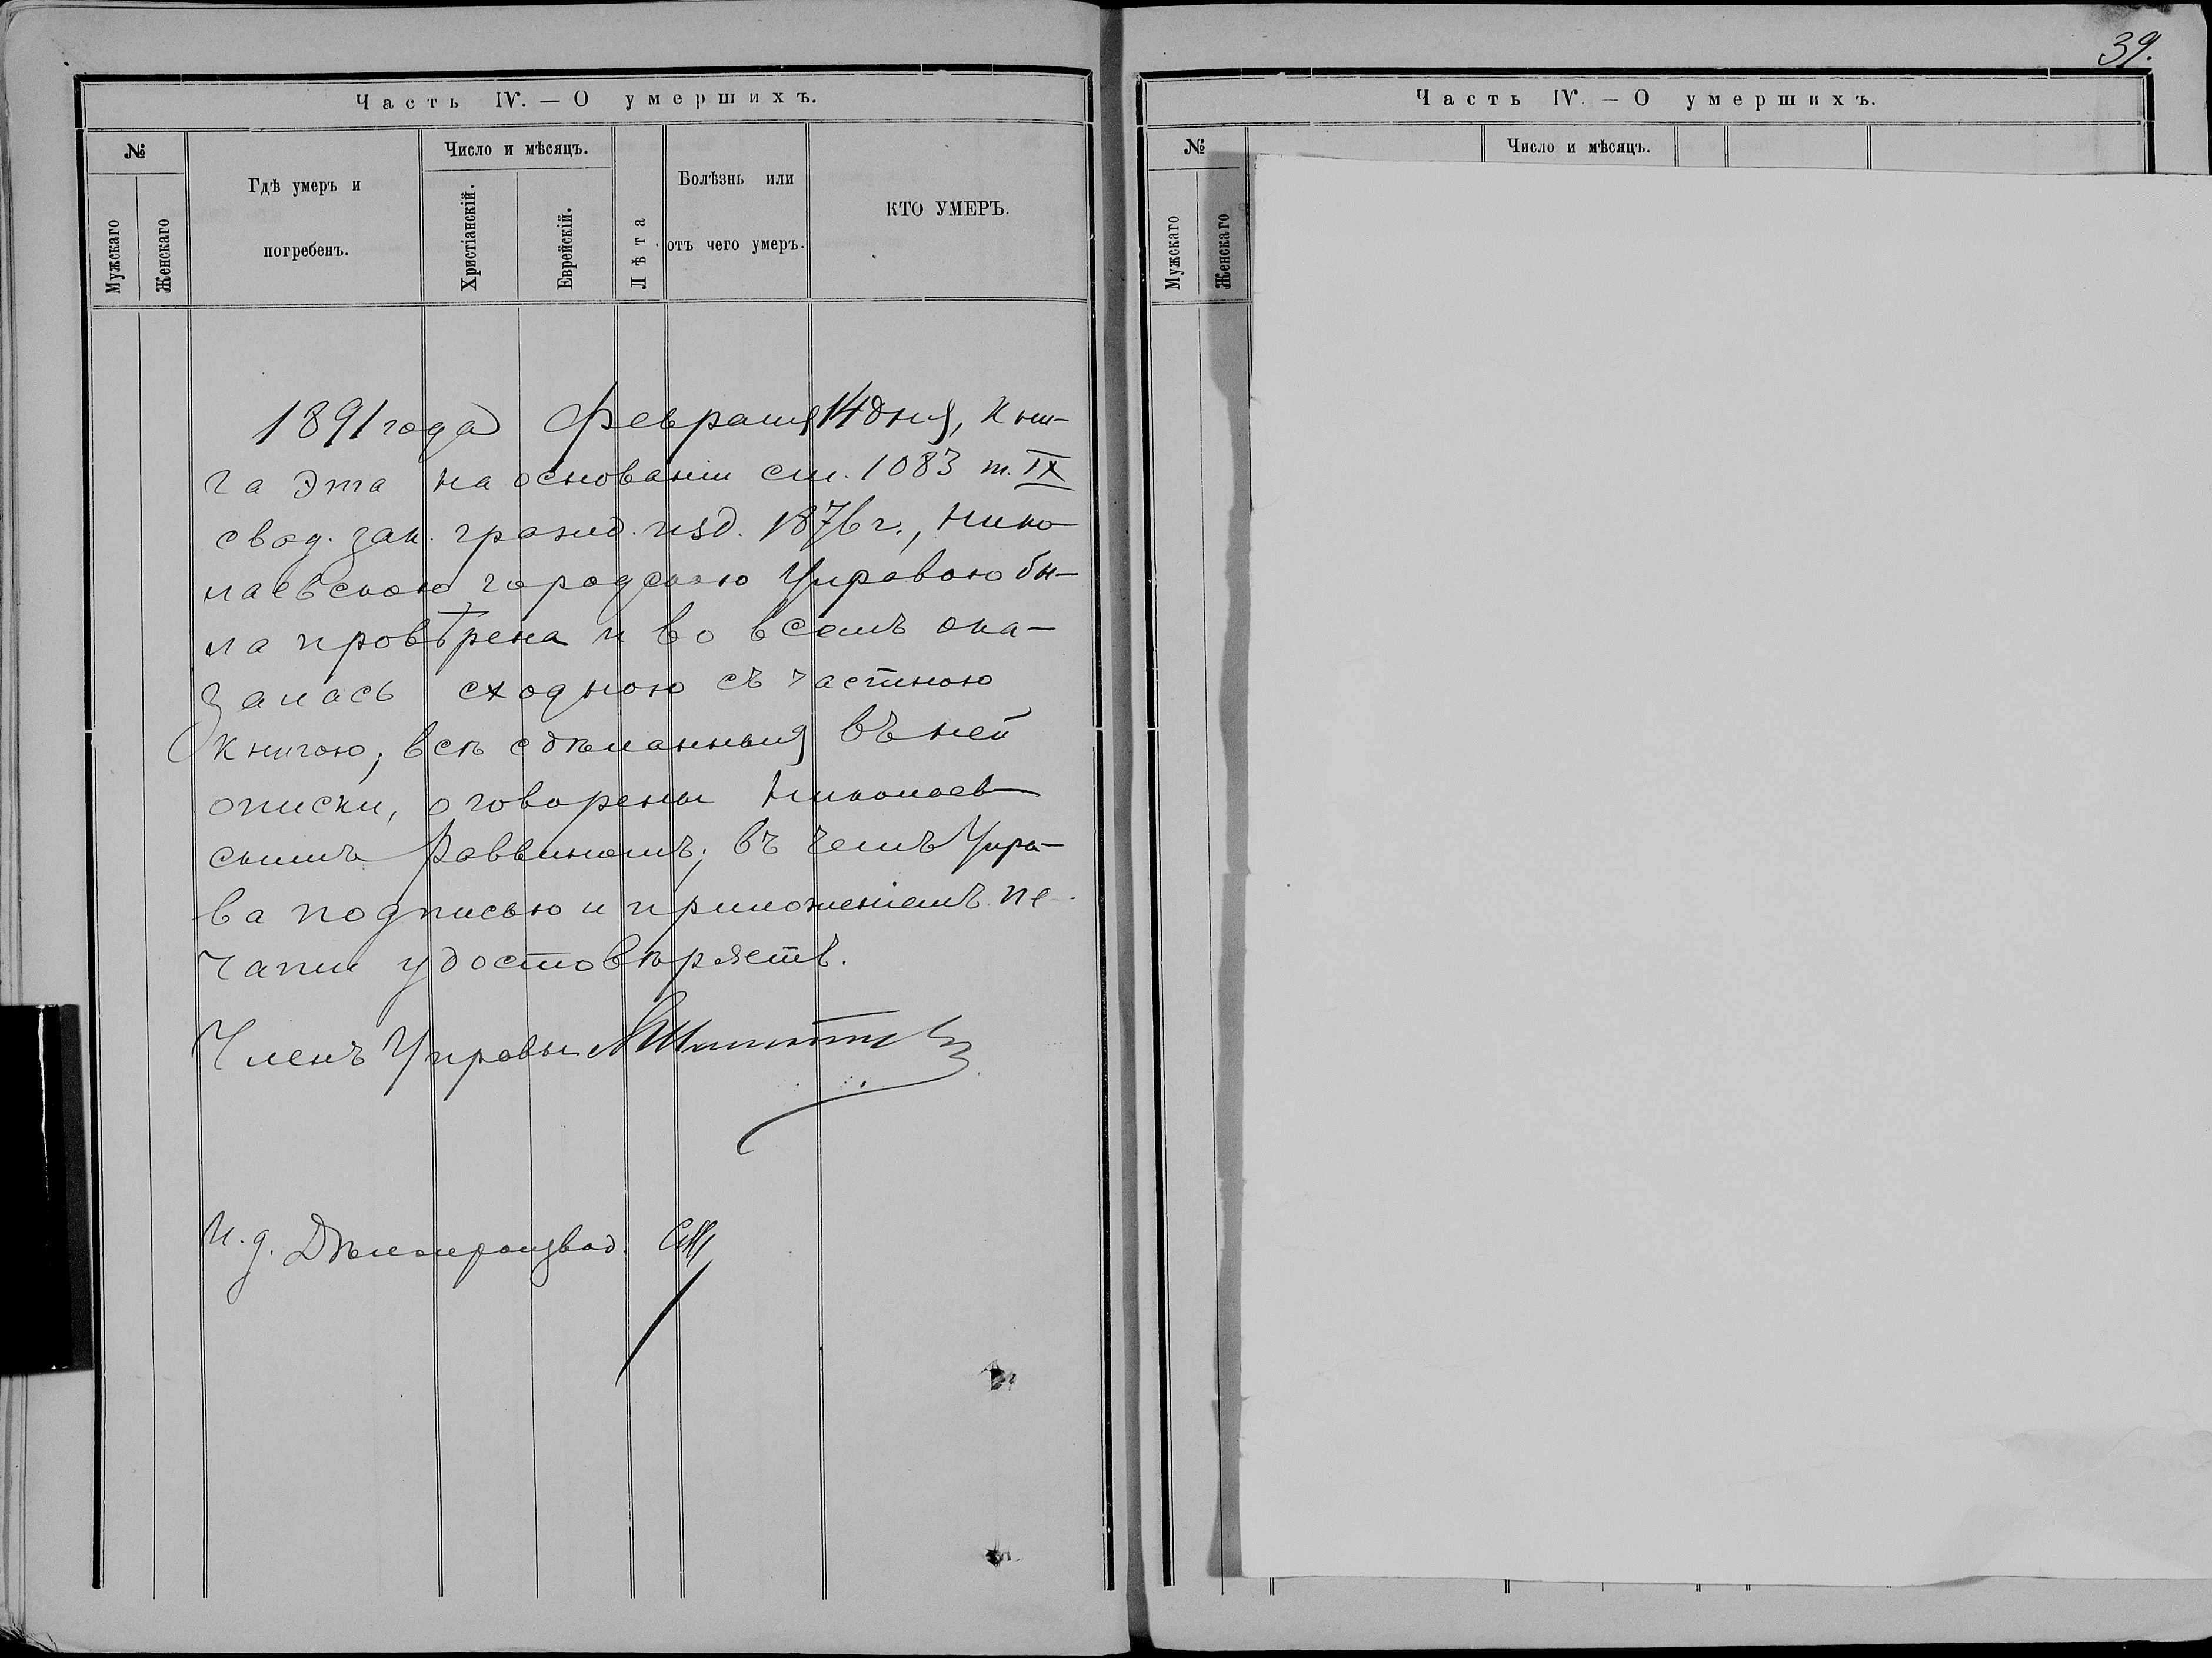 39.
Часть IV. — О умершихъ.
№
Мужскаго
Женскаго
Гдѣ умеръ и
погребенъ.
Число и мѣсяцъ.
Христіанскій.
Еврейскій.
Лѣта
Болѣзнь или
отъ чего умеръ.
КТО УМЕРЪ.
1891 года Февраля 14 дня, Кни-
га эта на основаніи ст. 1083 т. IX
свод. зак. гражд. изд. 1876 г., Нико
лаевскою городскою Управою бы-
ла провѣрена и во всемъ ока-
залась сходною съ частною
книгою; всѣ сдѣланныя въ ней
описки, оговорены Николаев
скимъ Раввиномъ; въ чемъ Упра-
ва подписью и приложеніемъ пе-
чати удостовѣряетъ.
Членъ Управы
И. д. Дѣлопроизвод.
Часть IV. — О умершихъ.
№
Мужскаго
Женскаго
Число и мѣсяцъ.